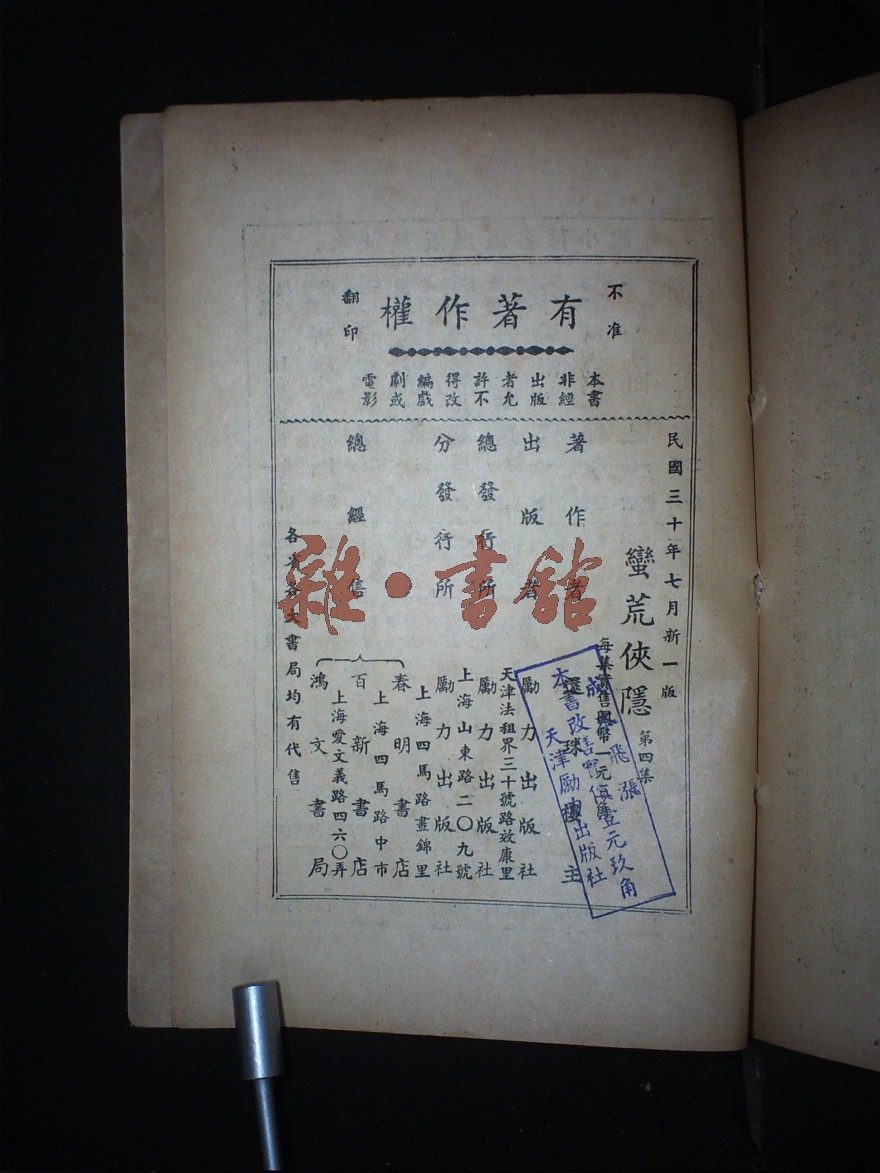 不准
有著作權
翻印
本書
非經
出版
者允
許不
得改
編戲
劇或
電影
民國三十年七月新一版
蠻荒俠隱
第四集
每集實售國幣一元
著作者
還珠樓主
出版者
勵力出版社
天津法租界三十號路效康里
總發行所
勵力出版社
上海山東路二〇九號
分發行所
勵力出版社
上海四馬路畫錦里
總經售
春明書店
上海四馬路中市
百新書店
上海愛文義路四六〇弄
鴻文書局
各省各大書局均有代售
成本飛漲
本書改售實價壹元玖角
天津勵力出版社
雜·書館